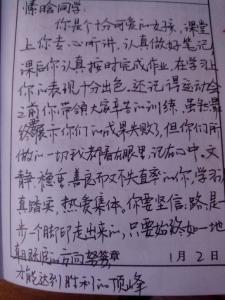 同学:
你是个十分可爱的女孩,课堂
上你专心听讲,认真做好笔记
课后你认真按时完成作业,在学习上
你的表现十分出色,还记得运动会
之前你带领大家辛苦的训练,虽然最
终展示你们的成果失败了,但你们所
做的一切我都看在眼里,记在心中。文
静、稳重,善良而又不失直率的你,学习认
真踏实,热爱集体。你要坚信:路,是一
步一个脚印走出来的,只要始终如一地
朝既定的方向努力
才能达到胜利的顶峰
签章
1月2日